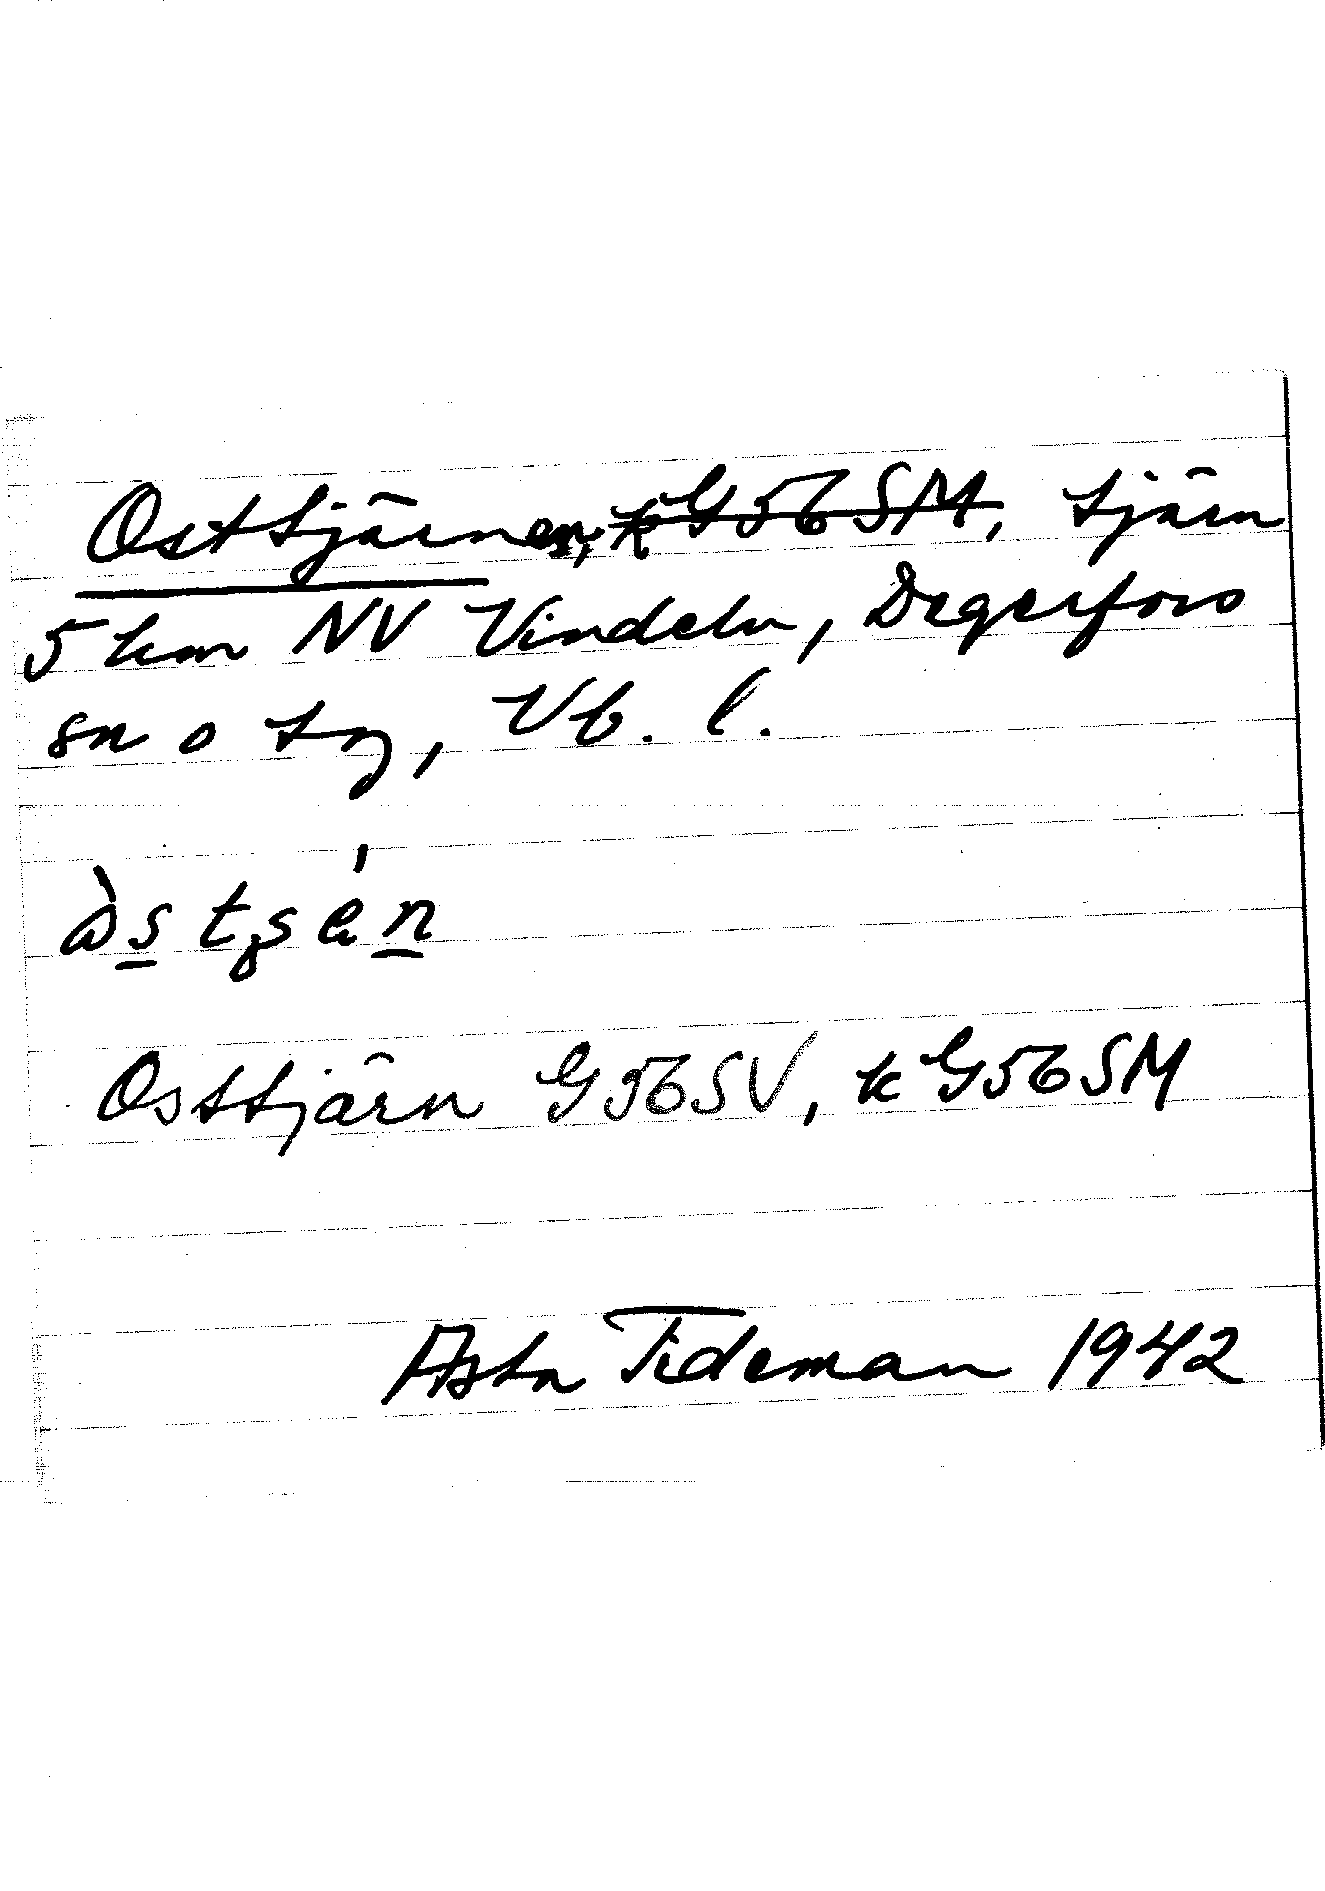 Osttjärnen, k G56SM, tjärn
5 km NV Vindeln, Degerfors
sn o tg, Vb. l.
Osttjärn G56SV, k G56SM
Asta Tideman 1942